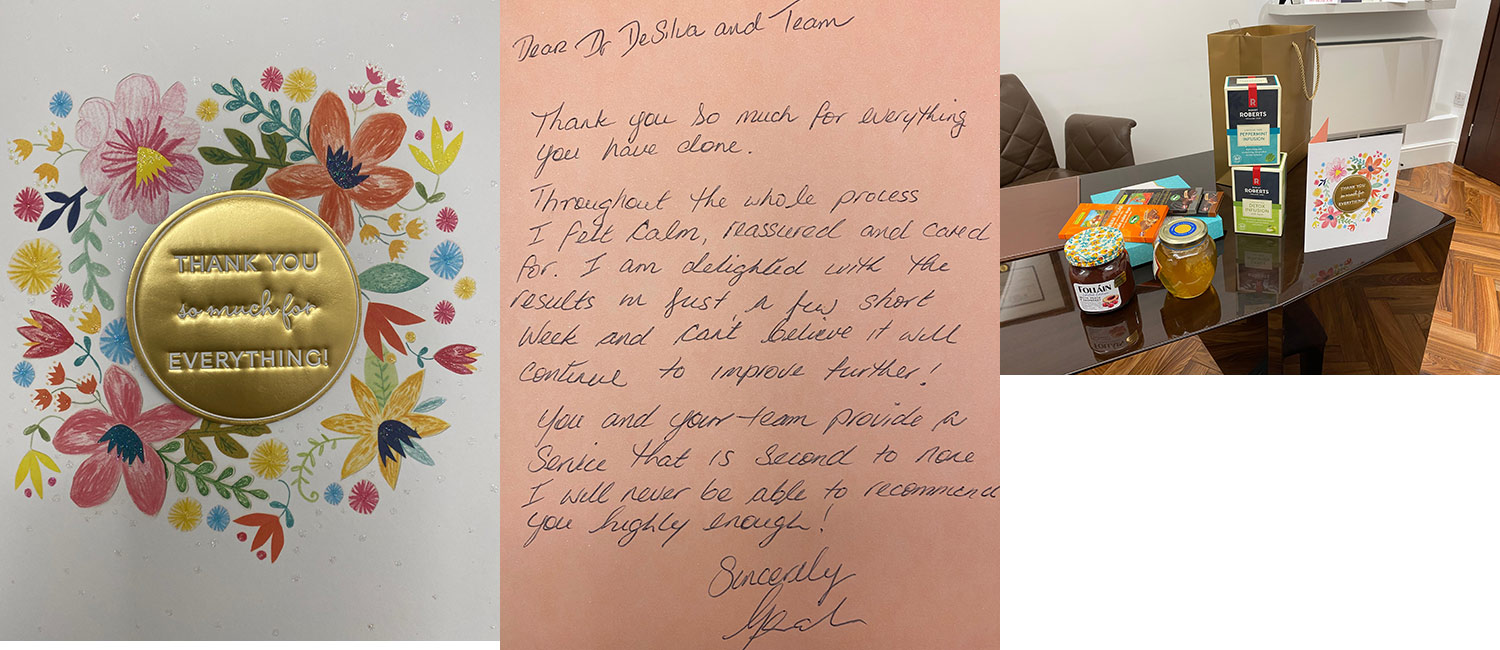 THANK YOU
so much for
EVERYTHING!
Dear Dr DeSilva and Team
Thank you so much for everything
you have done.
Throughout the whole process
I felt Calm, reassured and cared
for. I am delighted with the
results in just a few short
week and can't believe it will
continue to improve further!
You and your team provide a
Service that is second to none
I will never be able to recommend
you highly enough!
Sincerely
ROBERTS
PEPPERMINT
INFUSION
ROBERTS
DETOX
INFUSION
THANK YOU
so much for
EVERYTHING!
FOLLÁIN